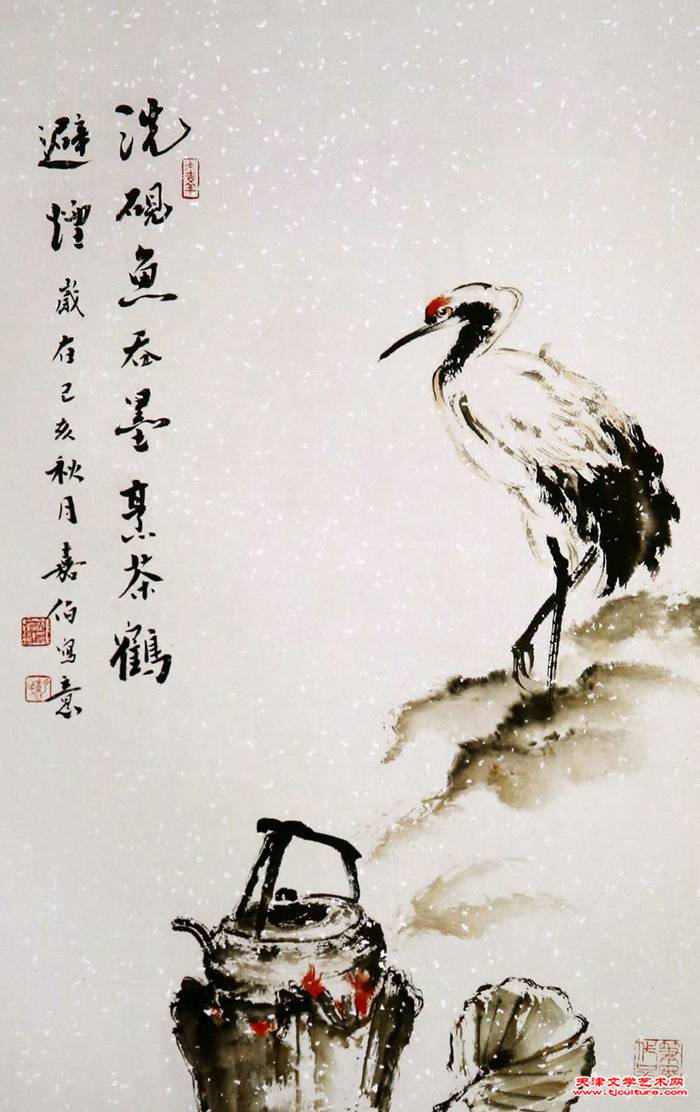 洗硯魚吞墨烹茶鶴
避煙歲在己亥秋月嘉伯寫意
大吉羊
天津文学艺术网
www.tjculture.com